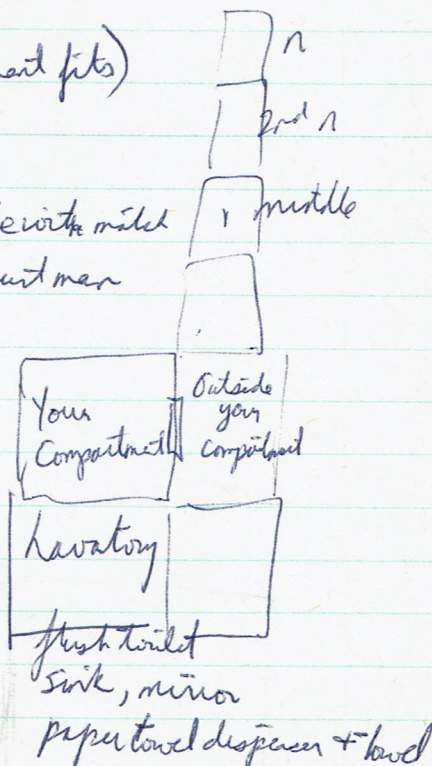 ent fits)
n
2nd n
middle
match
man
Your
Compartment
Outside
your
compartment
Lavatory
flush toilet
sink, mirror
paper towel dispenser + towel